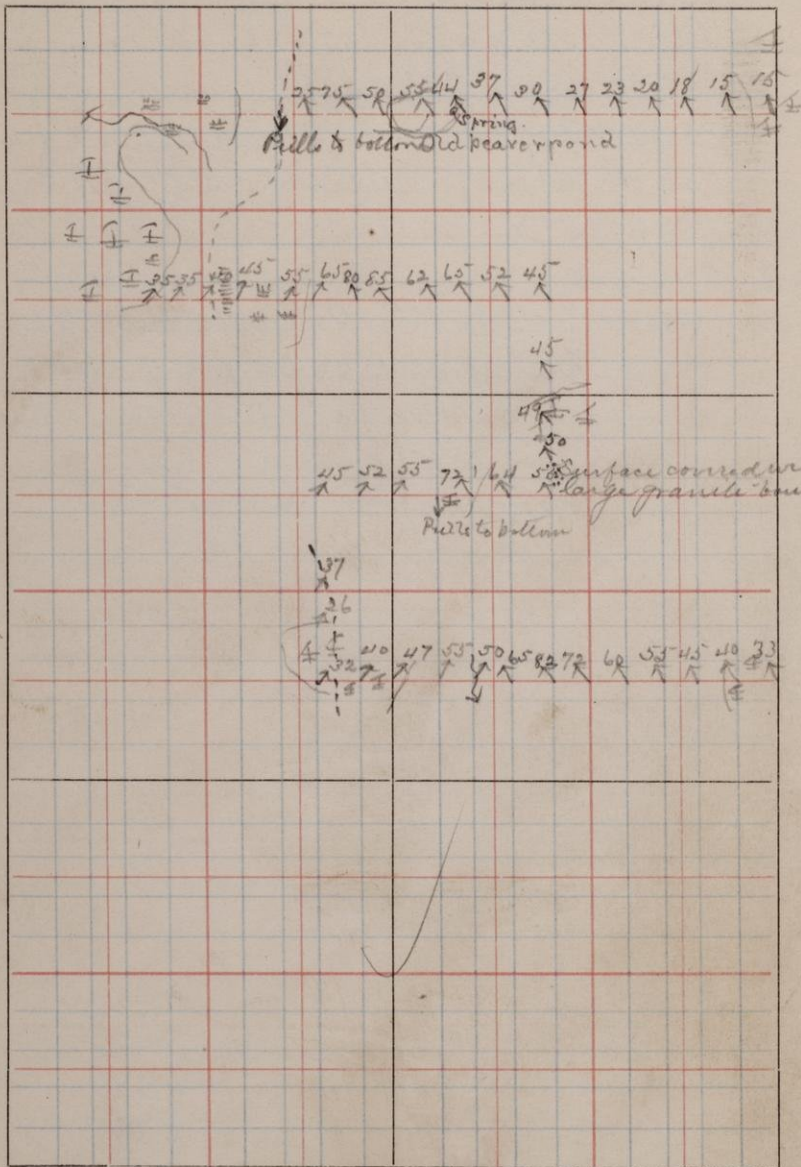 75 50 55 44 37 30 27 23 20 18 15 15
Spring
Pulls to bottom Old beaver pond
35 35 45 55 65 80 85 62 65 52 45
45
49
50
45 52 55 72 64 Surface covered
large granite
Pulls to bottom
37
26
32 40 47 55 50 65 82 72 60 55 45 40 33